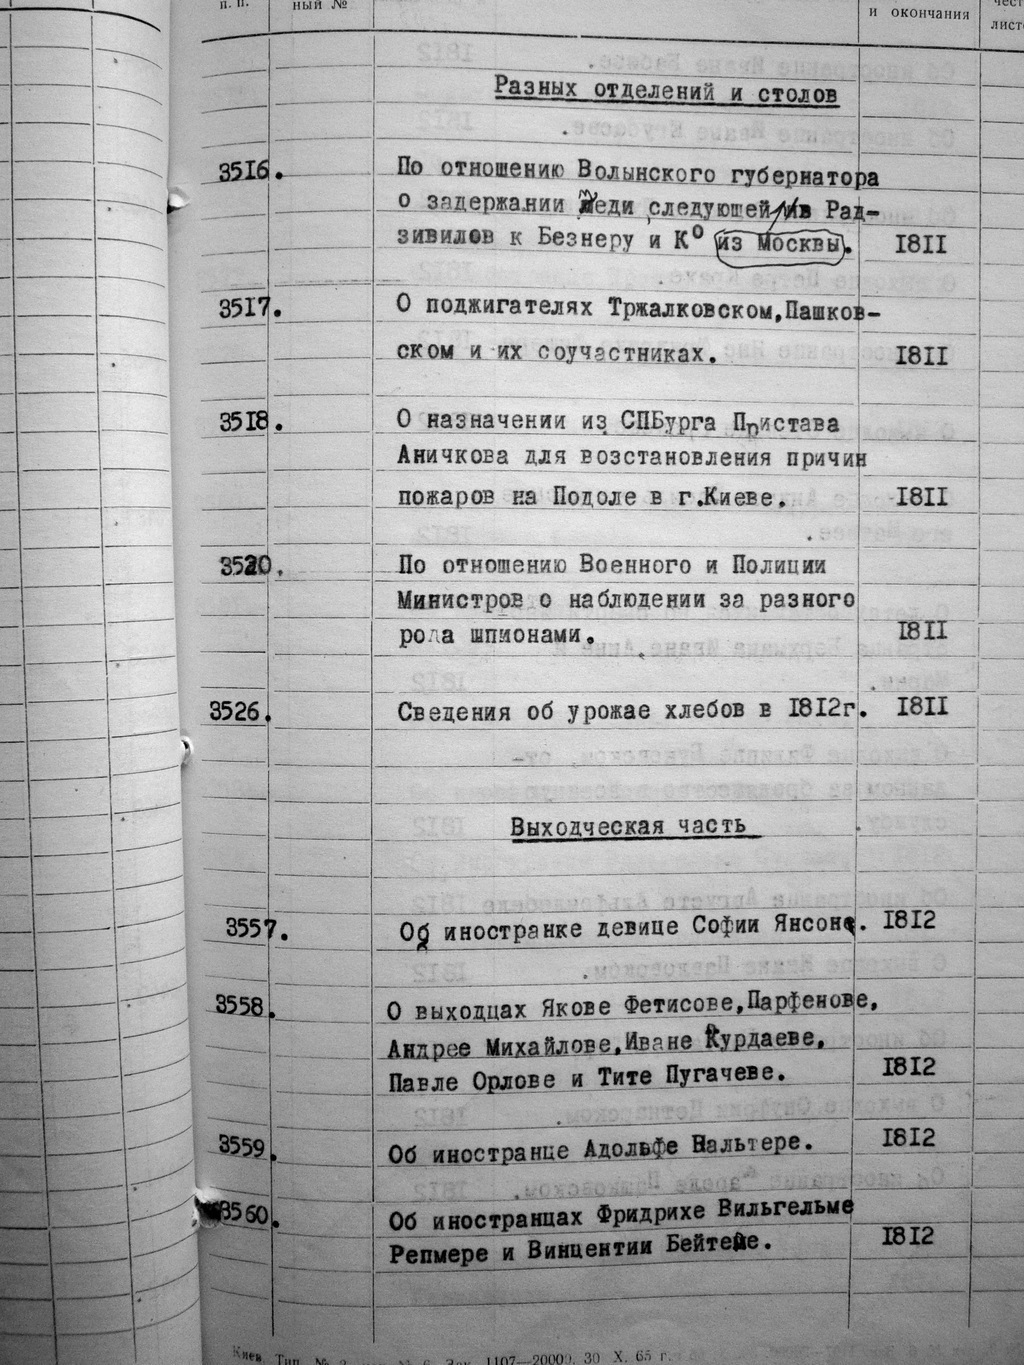 п. п.
ный №
и окончания
Разных отделений и столов
3516.
По отношению Волынского губернатора
о задержании меди следующей из Рад-
зивилов к Безнеру и К° из Москвы.
1811
3517.
О поджигателях Тржалковском,Пашков-
ском и их соучастниках.
1811
3518.
О назначении из СПБурга Пристава
Аничкова для возстановления причин
пожаров на Подоле в г.Киеве.
1811
3520.
По отношению Военного и Полиции
Министров о наблюдении за разного
рода шпионами.
1811
3526.
Сведения об урожае хлебов в 1812г.
1811
Выходческая часть
3557.
Об иностранке девице Софии Янсоне.
1812
3558.
О выходцах Якове Фетисове,Парфенове,
Андрее Михайлове,Иване Курдаеве,
Павле Орлове и Тите Пугачеве.
1812
3559.
Об иностранце Адольфе Вальтере.
1812
3560.
Об иностранцах Фридрихе Вильгельме
Репмере и Винцентии Бейтеле.
1812
Киев. Тип. № 2 1107—20000. 30 X. 65 г.